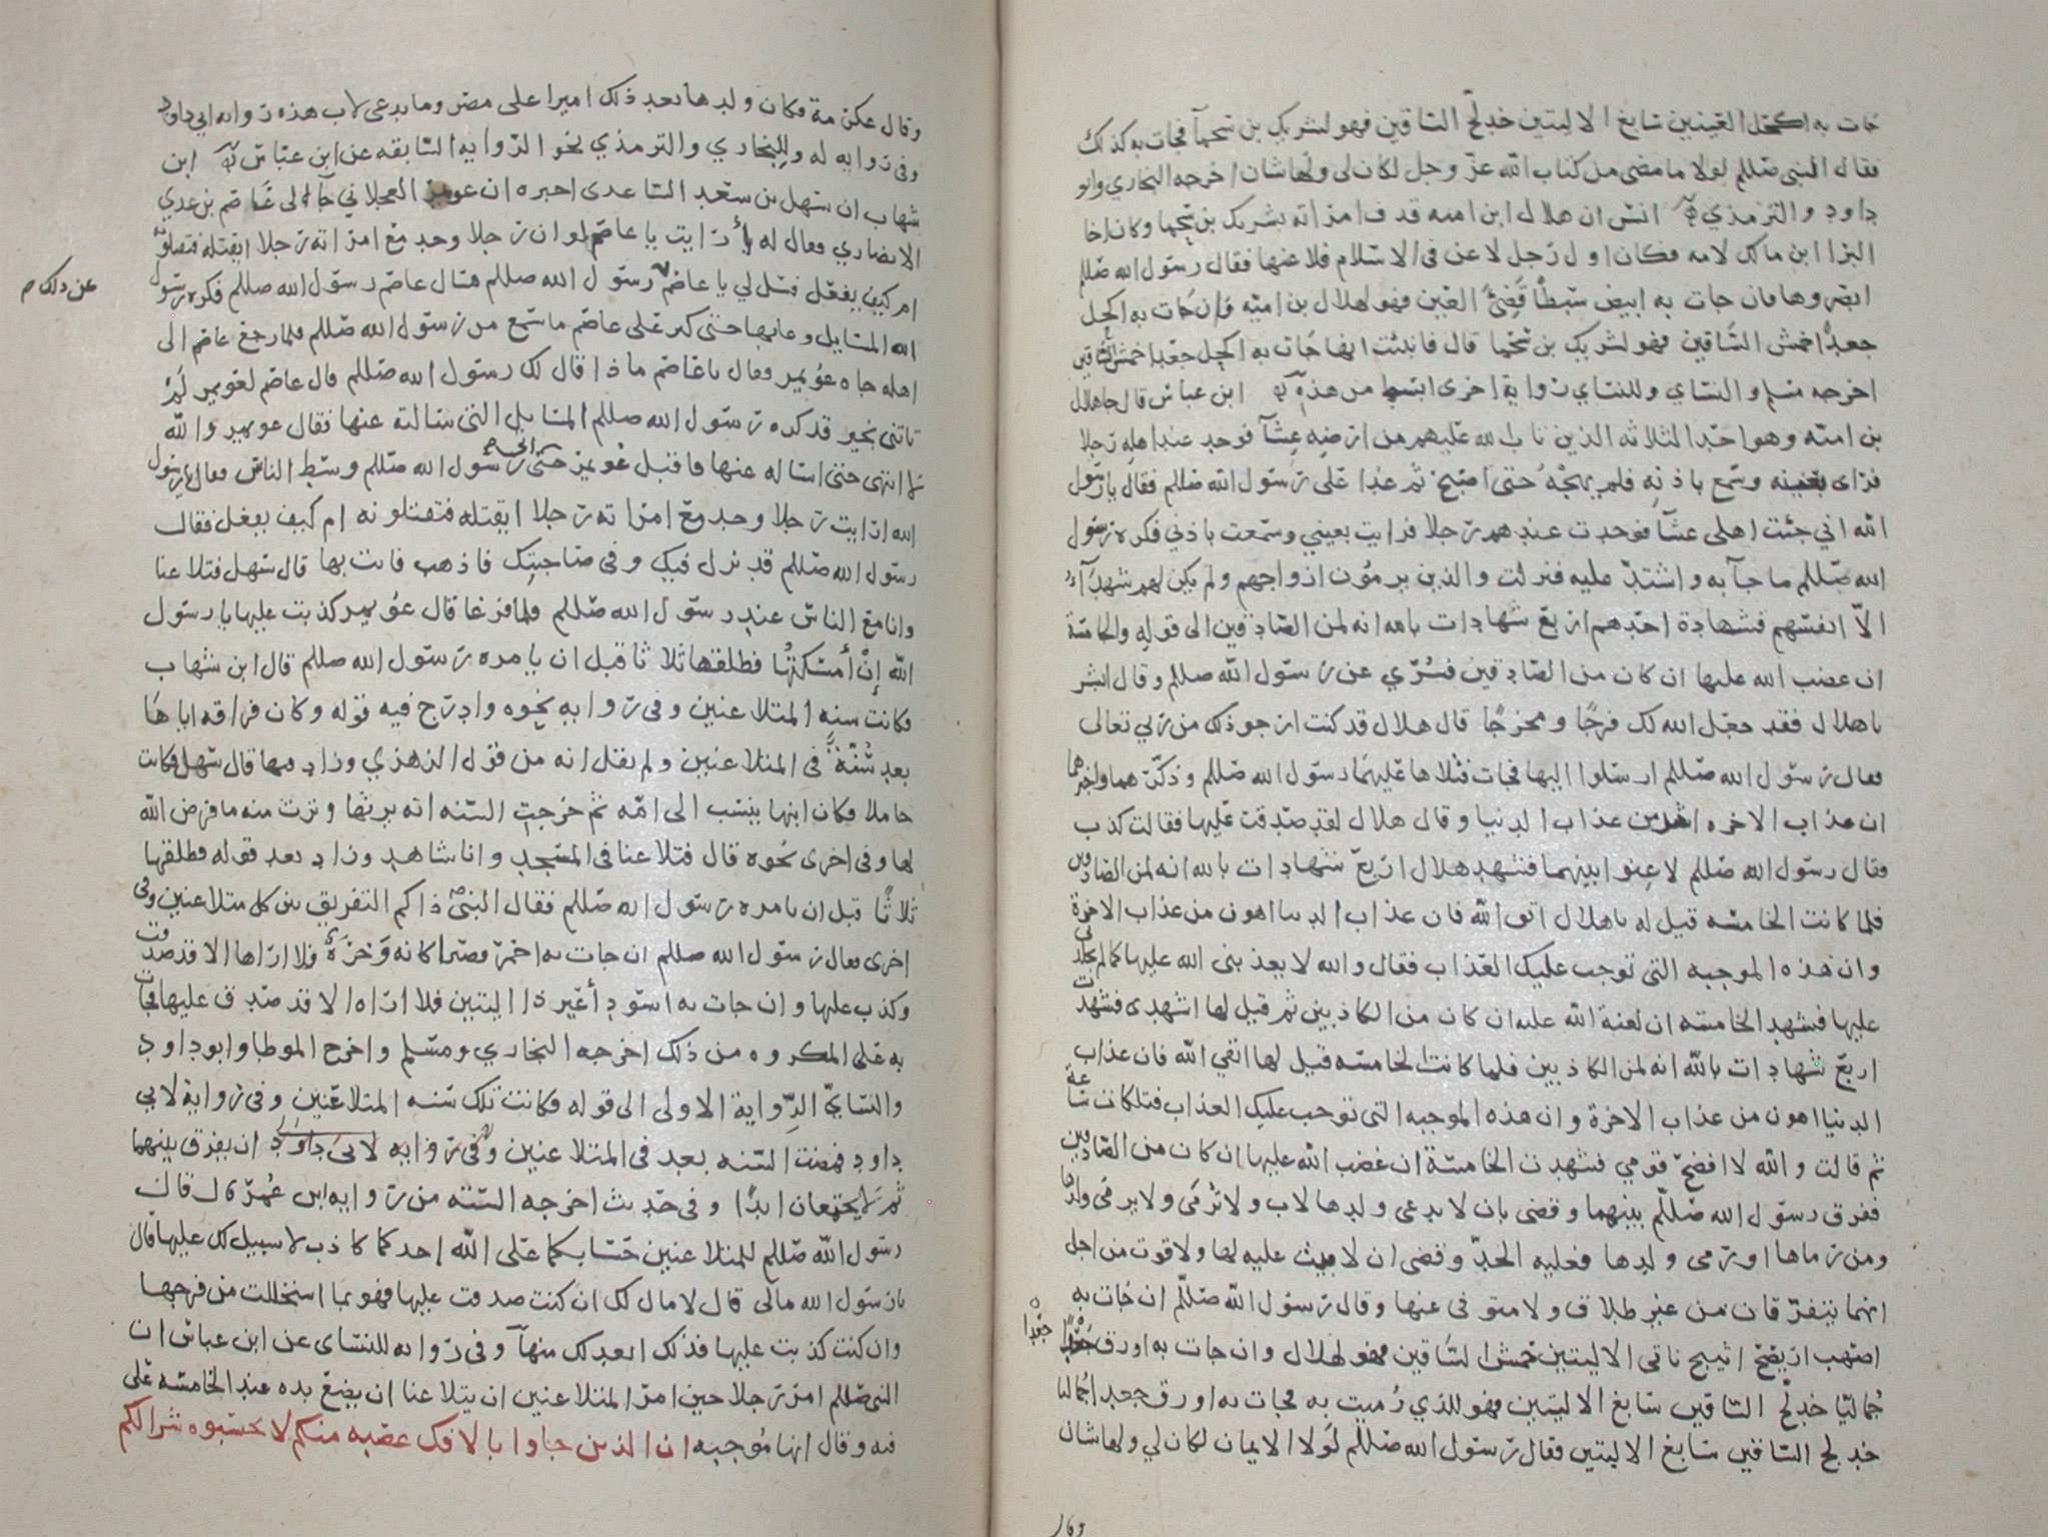 جات به اكحل العينين سابغ الاليتين خدلج الساقين فهو لشريك بن سحمآ فجات به كذلك
فقال النبى صللم لولا ما مضى من كتاب الله عز وجل لكان لى ولها شان اخرجه البخاري وابو
داود والترمذي انس ان هلال ابن اميه قذف امراته بشريك بن سحما وكان اخا
البرا ابن مالك لامه فكان اول رجل لاعن فى الاسلام فلاعنها فقال رسول الله صللم
ابصروها فان جات به ابيض سبطا قضئ العين فهو لهلال بن اميه وان جات به اكحل
جعدا احمش الساقين فهو لشريك بن سحما قال فانبئت انها جات به اكحل جعدا احمش الساقين
اخرجه مسلم والنساي وللنساي رواية اخرى ابسط من هذه ابن عباس قال جا هلال
بن اميه وهو احد الثلاثه الذين تاب الله عليهم من ارضه عشآ فوجد عند اهله رجلا
فراى بعينه وسمع باذنه فلم يهجه حتى اصبح ثم غدا على رسول الله صللم فقال يا رسول
الله اني جئت اهلى عشآ فوجدت عندهم رجلا فرايت بعيني وسمعت باذني فكره رسول
الله صللم ما جآ به واشتد عليه فنزلت والذين يرمون ازواجهم ولم يكن لهم شهدآء
الا انفسهم فشهادة احدهم اربع شهادات بالله انه لمن الصادقين الى قوله والخامسة
ان غضب الله عليها ان كان من الصادقين فسري عن رسول الله صللم وقال ابشر
يا هلال فقد جعل الله لك فرجا ومخرجا قال هلال قد كنت ارجو ذلك من ربي تعالى
فقال رسول الله صللم ارسلوا اليها فجات فتلاها عليهما رسول الله صللم وذكرهما واخبرهما
ان عذاب الاخره اشد من عذاب الدنيا وقال هلال لقد صدقت عليها فقالت كذب
فقال رسول الله صللم لاعنوا بينهما فشهد هلال اربع شهادات بالله انه لمن الصادقين
فلما كانت الخامسه قيل له يا هلال اتق الله فان عذاب الدنيا اهون من عذاب الاخرة
وان هذه الموجبه التى توجب عليك العذاب فقال والله لا يعذبنى الله عليها كما لم يجلدنى
عليها فشهد الخامسه ان لعنة الله عليه ان كان من الكاذبين ثم قيل لها اشهدى فشهدت
اربع شهادات بالله انه لمن الكاذبين فلما كانت الخامسه قيل لها اتقي الله فان عذاب
الدنيا اهون من عذاب الاخرة وان هذه الموجبه التى توجب عليك العذاب فتلكات ساعة
ثم قالت والله لا افضح قومي فشهدت الخامسة ان غضب الله عليها ان كان من الصادقين
ففرق رسول الله صللم بينهما وقضى بان لا يدعى ولدها لاب ولا ترمى ولا يرمى ولدها
ومن رماها او رمى ولدها فعليه الحد وقضى ان لا بيت عليه لها ولا قوت من اجل
انهما يتفرقان من غير طلاق ولا متوفى عنها وقال رسول الله صللم ان جات به
اصهب اريضح اثيبج ناتى الاليتين حمش الساقين فهو لهلال وان جات به اورق جعدا
جعدا
جماليا خدلج الساقين سابغ الاليتين فهو للذي رميت به فجات به اورق جعدا جماليا
خدلج الساقين سابغ الاليتين فقال رسول الله صللم لولا الايمان لكان لي ولها شان
وقال
وقال عكرمة فكان ولدها بعد ذلك اميرا على مضر وما يدعى لاب هذه روايه ابي داود
وفى روايه له وللبخاري والترمذي نحو الروايه السابقه عن ابن عباس ابن
شهاب ان سهل بن سعد الساعدى اخبره ان عويمر العجلاني جآ الى عاصم بن عدي
الانصاري فقال له أرايت يا عاصم لو ان رجلا وجد مع امراته رجلا ايقتله فتقتلونه
ام كيف يفعل فسل لي يا عاصم رسول الله صللم فسال عاصم رسول الله صللم فكره رسول
عن ذلك م
الله المسايل وعابها حتى كبر على عاصم ما سمع من رسول الله صللم فلما رجع عاصم الى
اهله جاه عويمر وقال يا عاصم ماذا قال لك رسول الله صللم قال عاصم لعويمر لم
تاتنى بخير قد كره رسول الله صللم المسايل التى سالته عنها فقال عويمر والله
لا انتهى حتى اساله عنها فاقبل عويمر حتى اتى رسول الله صللم وسط الناس فقال يا رسول
الله ارايت رجلا وجد مع امراته رجلا ايقتله فتقتلونه ام كيف يفعل فقال
رسول الله صللم قد نزل فيك وفى صاحبتك فاذهب فات بها قال سهل فتلاعنا
وانا مع الناس عند رسول الله صللم فلما فرغا قال عويمر كذبت عليها يا رسول
الله إن أمسكتها فطلقها ثلاثا قبل ان يامره رسول الله صللم قال ابن شهاب
فكانت سنه المتلاعنين وفى روايه نحوه وادرج فيه قوله وكان فراقه اياها
بعد سنة فى المتلاعنين ولم يقل انه من قول الزهري وزاد فيها قال سهل فكانت
حاملا فكان ابنها ينسب الى امه ثم خرجت السنه انه يرثها وترث منه ما فرض الله
لها وفى اخرى نحوه قال فتلاعنا فى المسجد وانا شاهد وزاد بعد قوله فطلقها
ثلاثا قبل ان يامره رسول الله صللم فقال النبى ذاكم التفريق بين كل متلاعنين وفى
اخرى فقال رسول الله صللم ان جات به احمر قصيرا كانه وحرة فلا اراها الا قد صدقت
وكذب عليها وان جات به اسود أعين ذا اليتين فلا اراه الا قد صدق عليها فجات
به على المكروه من ذلك اخرجه البخاري ومسلم واخرج الموطا وابو داود
والنسائي الرواية الاولى الى قوله فكانت تلك سنه المتلاعنين وفى رواية لابي
داود فمضت السنه بعد فى المتلاعنين وفى روايه لابى داود ان يفرق بينهما
ثم لا يجتمعان ابدا وفى حديث اخرجه الستة من روايه ابن عمر قال قال
رسول الله صللم للمتلاعنين حسابكما على الله احدكما كاذب لا سبيل لك عليها قال
يا رسول الله مالى قال لا مال لك ان كنت صدقت عليها فهو بما استحللت من فرجها
وان كنت كذبت عليها فذلك ابعد لك منهآ وفى روايه للنساى عن ابن عباس ان
النبى صللم امر رجلا حين امر المتلاعنين ان يتلاعنا ان يضع يده عند الخامسه على
فيه وقال انها موجبه ان الذين جاوا بالافك عصبه منكم لا تحسبوه شرا لكم